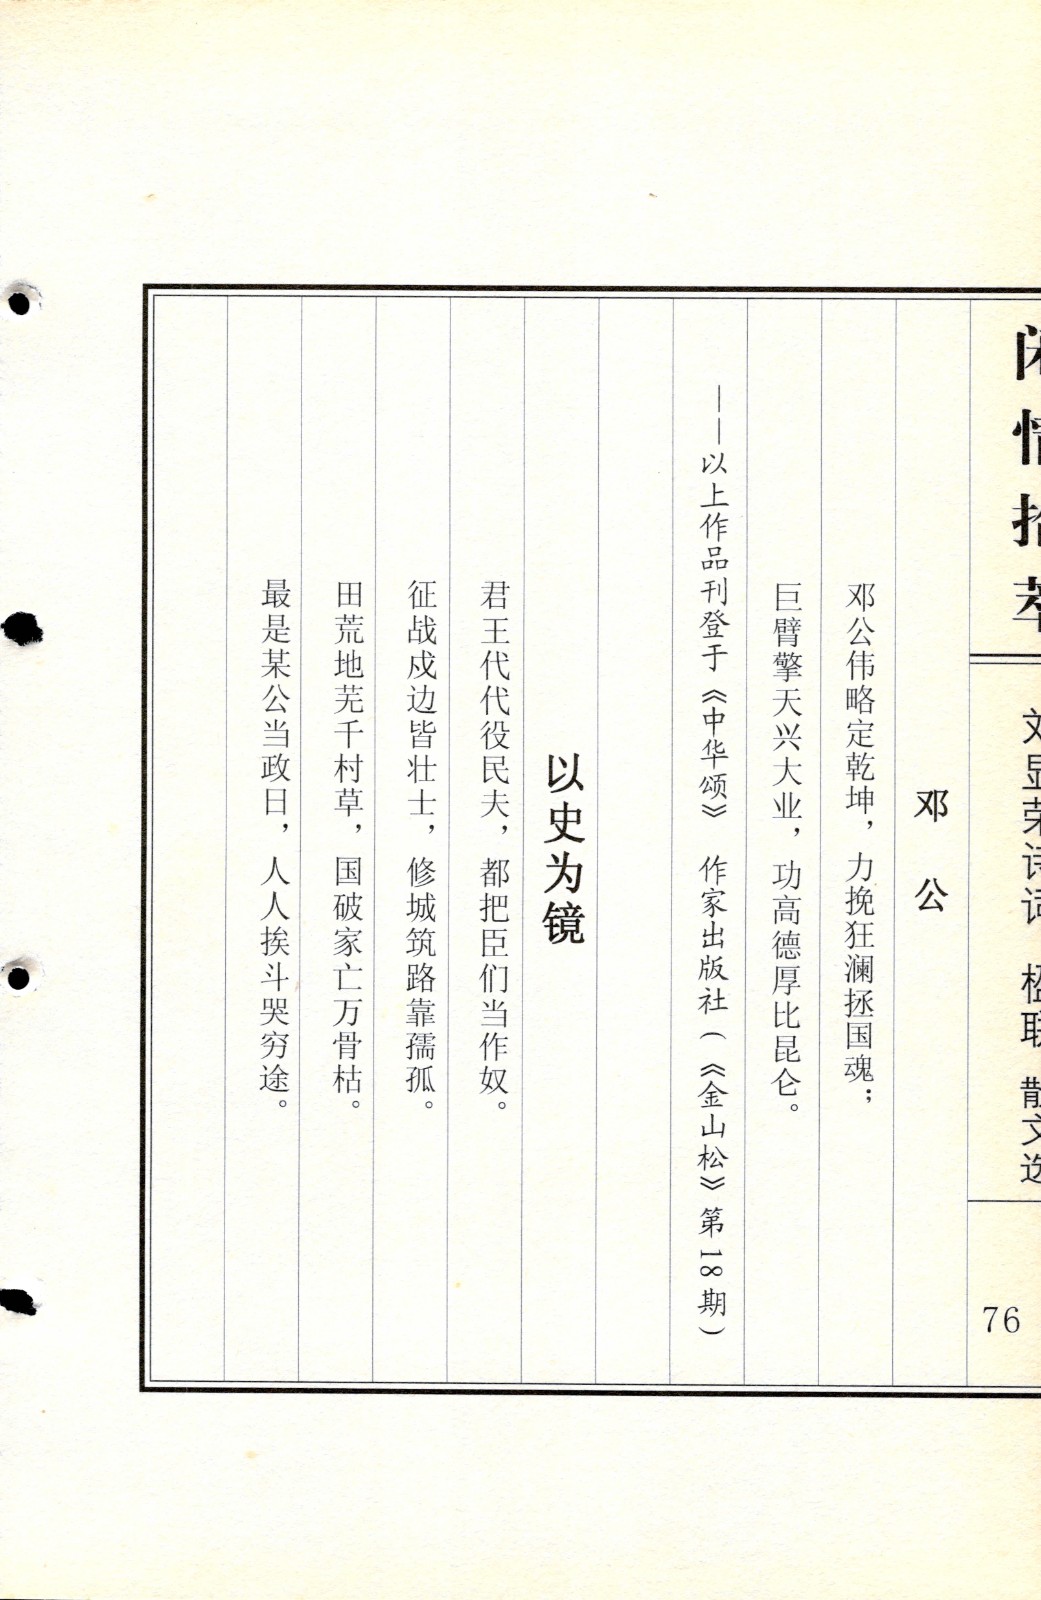 闲情拾萃
刘显荣诗词 楹联 散文选
76
邓公
邓公伟略定乾坤，力挽狂澜拯国魂；
巨臂擎天兴大业，功高德厚比昆仑。
——以上作品刊登于《中华颂》 作家出版社（《金山松》第18期）
以史为镜
君王代代役民夫，都把臣们当作奴。
征战戍边皆壮士，修城筑路靠孺孤。
田荒地芜千村草，国破家亡万骨枯。
最是某公当政日，人人挨斗哭穷途。